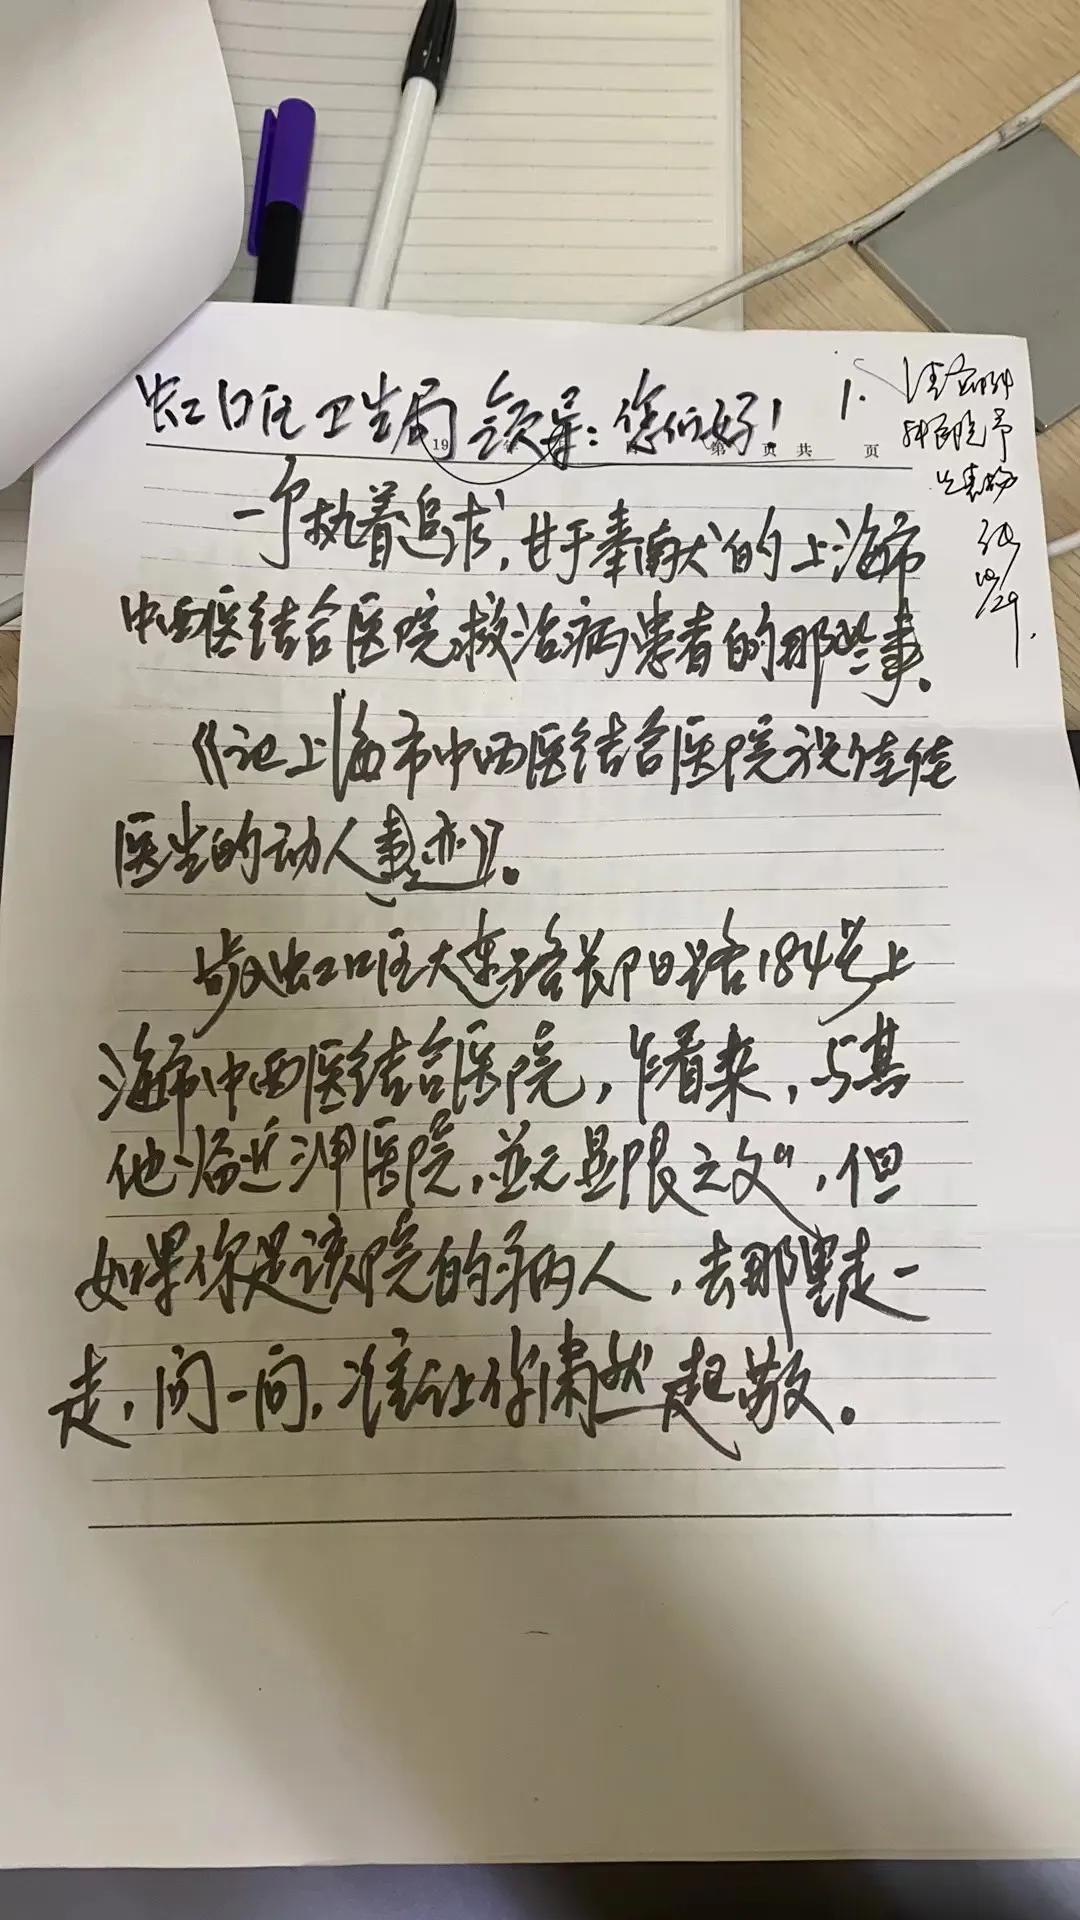 虹口区卫生局领导：您们好！ 1.
19 年 第 页 共 页
一个执着追求，甘于奉献的上海市
中西医结合医院救治病患者的那些事。
《记上海市中西医结合医院祝佳佳
医生的动人事迹》。
步入虹口区大连路长阳路184号上
海市中西医结合医院，乍看来，与其
他临近沪申医院，並无显眼之处"，但
如果你是该院的病人，去那里走一
走，问一问，准让你肃然起敬。
10/29